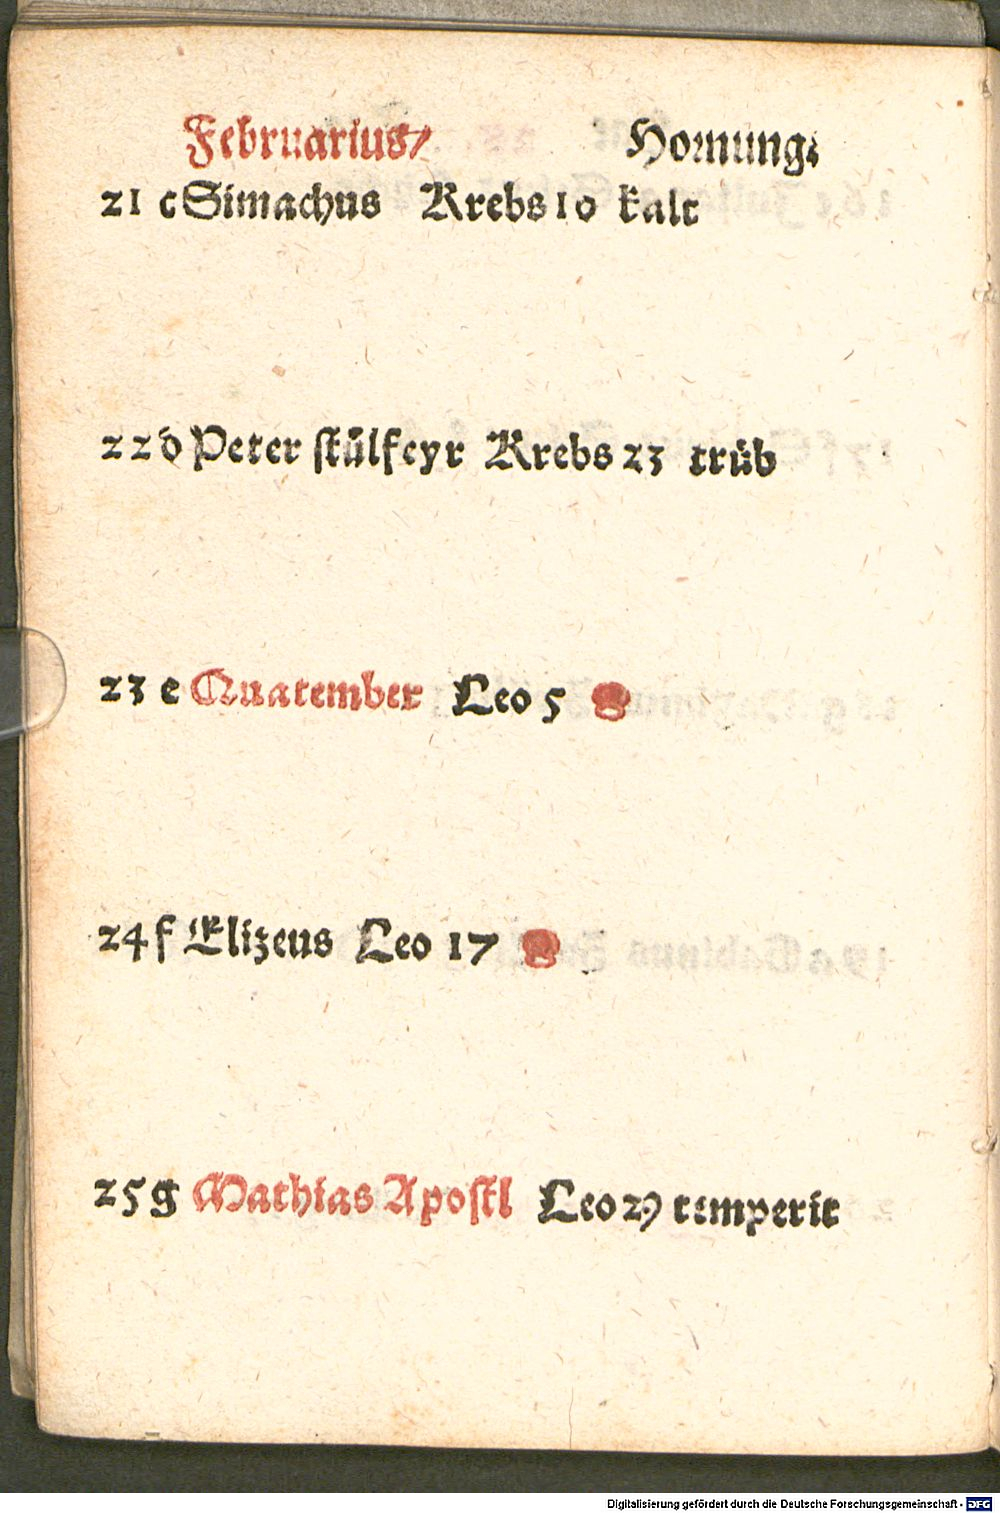 Februarius/ Hornung:
21 c Simachus Krebs 10 kalt
22 d Peter stůlfeyr Krebs 23 trüb
23 e Quatember Leo 5
24 f Elizeus Leo 17
25 g Mathias Apostl Leo 29 temperit
Digitalisierung gefördert durch die Deutsche Forschungsgemeinschaft - DFG